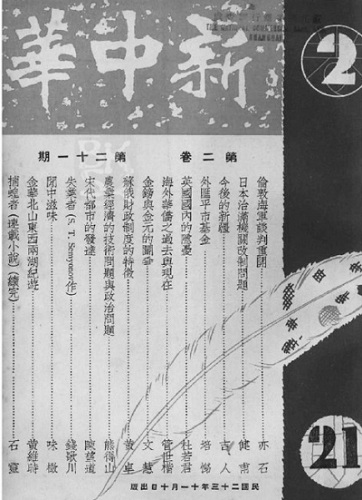 新中華
2
第二卷
第二十一期
倫敦海軍談判重開 亦石
日本治滿機關改制問題 健甫
今後的新疆 吉人
外匯平市基金 培悌
英國國內的隱憂 杜若君
海外華僑之過去與現在 管世楷
金鎊與金元的鬬爭 文慧
蘇俄財政制度的特徵 黃卓
農業經濟的技術問題與政治問題 熊得山
宋代都市的發達 陳
失業者(S. T. Semyonov作) 錢歌川
閒中滋味 味橄
金華北山東西兩湖紀遊 黃維時
捕蝗者(連載小說)(續完) 石靈
21
民國二十三年十一月十日出版